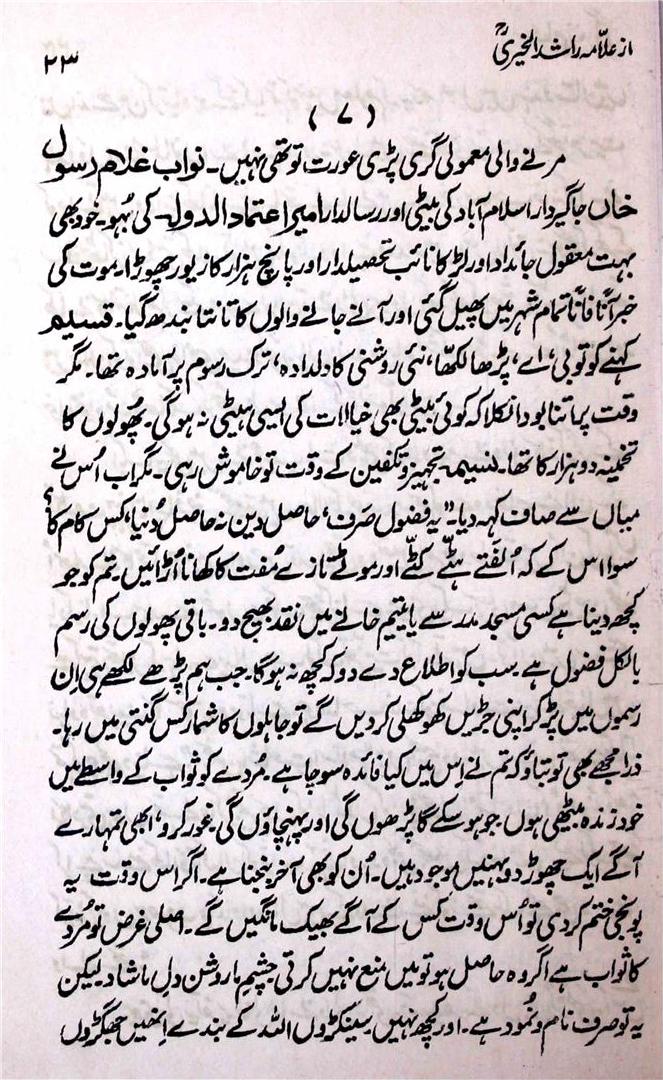 از علامہ راشد الخیریؒ
۲۳
(۷)
مرنے والی معمولی گری پڑی عورت تو تھی نہیں۔ نواب غلام رسول
خاں جاگیردار اسلام آباد کی بیٹی اور رسالدار امیر اعتماد الدولہ کی بہو۔ خود بھی
بہت معقول جائداد اور لڑکا نائب تحصیلدار اور پانچ ہزار کا زیور چھوڑا۔ موت کی
خبر آناً فاناً تمام شہر میں پھیل گئی اور آنے جانے والوں کا تانتا بندھ گیا۔ قسیم
کہنے کو تو بی، اے، پڑھا لکھا، نئی روشنی کا دلدادہ، ترک رسوم پر آمادہ تھا۔ مگر
وقت پر اتنا بودا نکلا کہ کوئی بیٹی بھی خیالات کی ایسی ہیٹی نہ ہوگی۔ پھولوں کا
تخمینہ دو ہزار کا تھا۔ نسیمہ تجہیز و تکفین کے وقت تو خاموش رہی۔ مگر اب اُس نے
میاں سے صاف کہہ دیا۔" یہ فضول صَرف، حاصل دین نہ حاصل دُنیا، کس کام کا؟
سوا اس کے کہ اُلفتے ہٹّے کٹّے اور موٹے تازے مُفت کا کھانا اُڑائیں۔ تم کو جو
کچھ دینا ہے کسی مسجد مدرسے یا یتیم خانے میں نقد بھیج دو۔ باقی پھولوں کی رسم
بالکل فضول ہے۔ سب کو اطلاع دے دو کہ کچھ نہ ہوگا۔ جب ہم پڑھے لکھے ہی اِن
رسموں میں پڑ کر اپنی جڑیں کھوکھلی کر دیں گے تو جاہلوں کا شمار کس گنتی میں رہا۔
ذرا مجھے بھی تو بتاؤ کہ تم نے اِس میں کیا فائدہ سوچا ہے۔ مُردے کو ثواب کے واسطے میں
خود زندہ بیٹھی ہوں۔ جو ہو سکے گا پڑھوں گی اور پہنچاؤں گی۔ غور کرو، ابھی تمہارے
آگے ایک چھوڑ دو بہنیں موجود ہیں۔ اُن کو بھی آخر پنجنا ہے۔ اگر اس وقت یہ
پونجی ختم کر دی تو اُس وقت کس کے آگے بھیک مانگیں گے۔ اصلی غرض تو مُردے
کا ثواب ہے اگر وہ حاصل ہو تو میں منع نہیں کرتی۔ چشمِ ما روشن دلِ ما شاد۔ لیکن
یہ تو صرف نام و نُمود ہے۔ اور کچھ نہیں۔ سینکڑوں اللہ کے بندے اِنھیں جھگڑوں